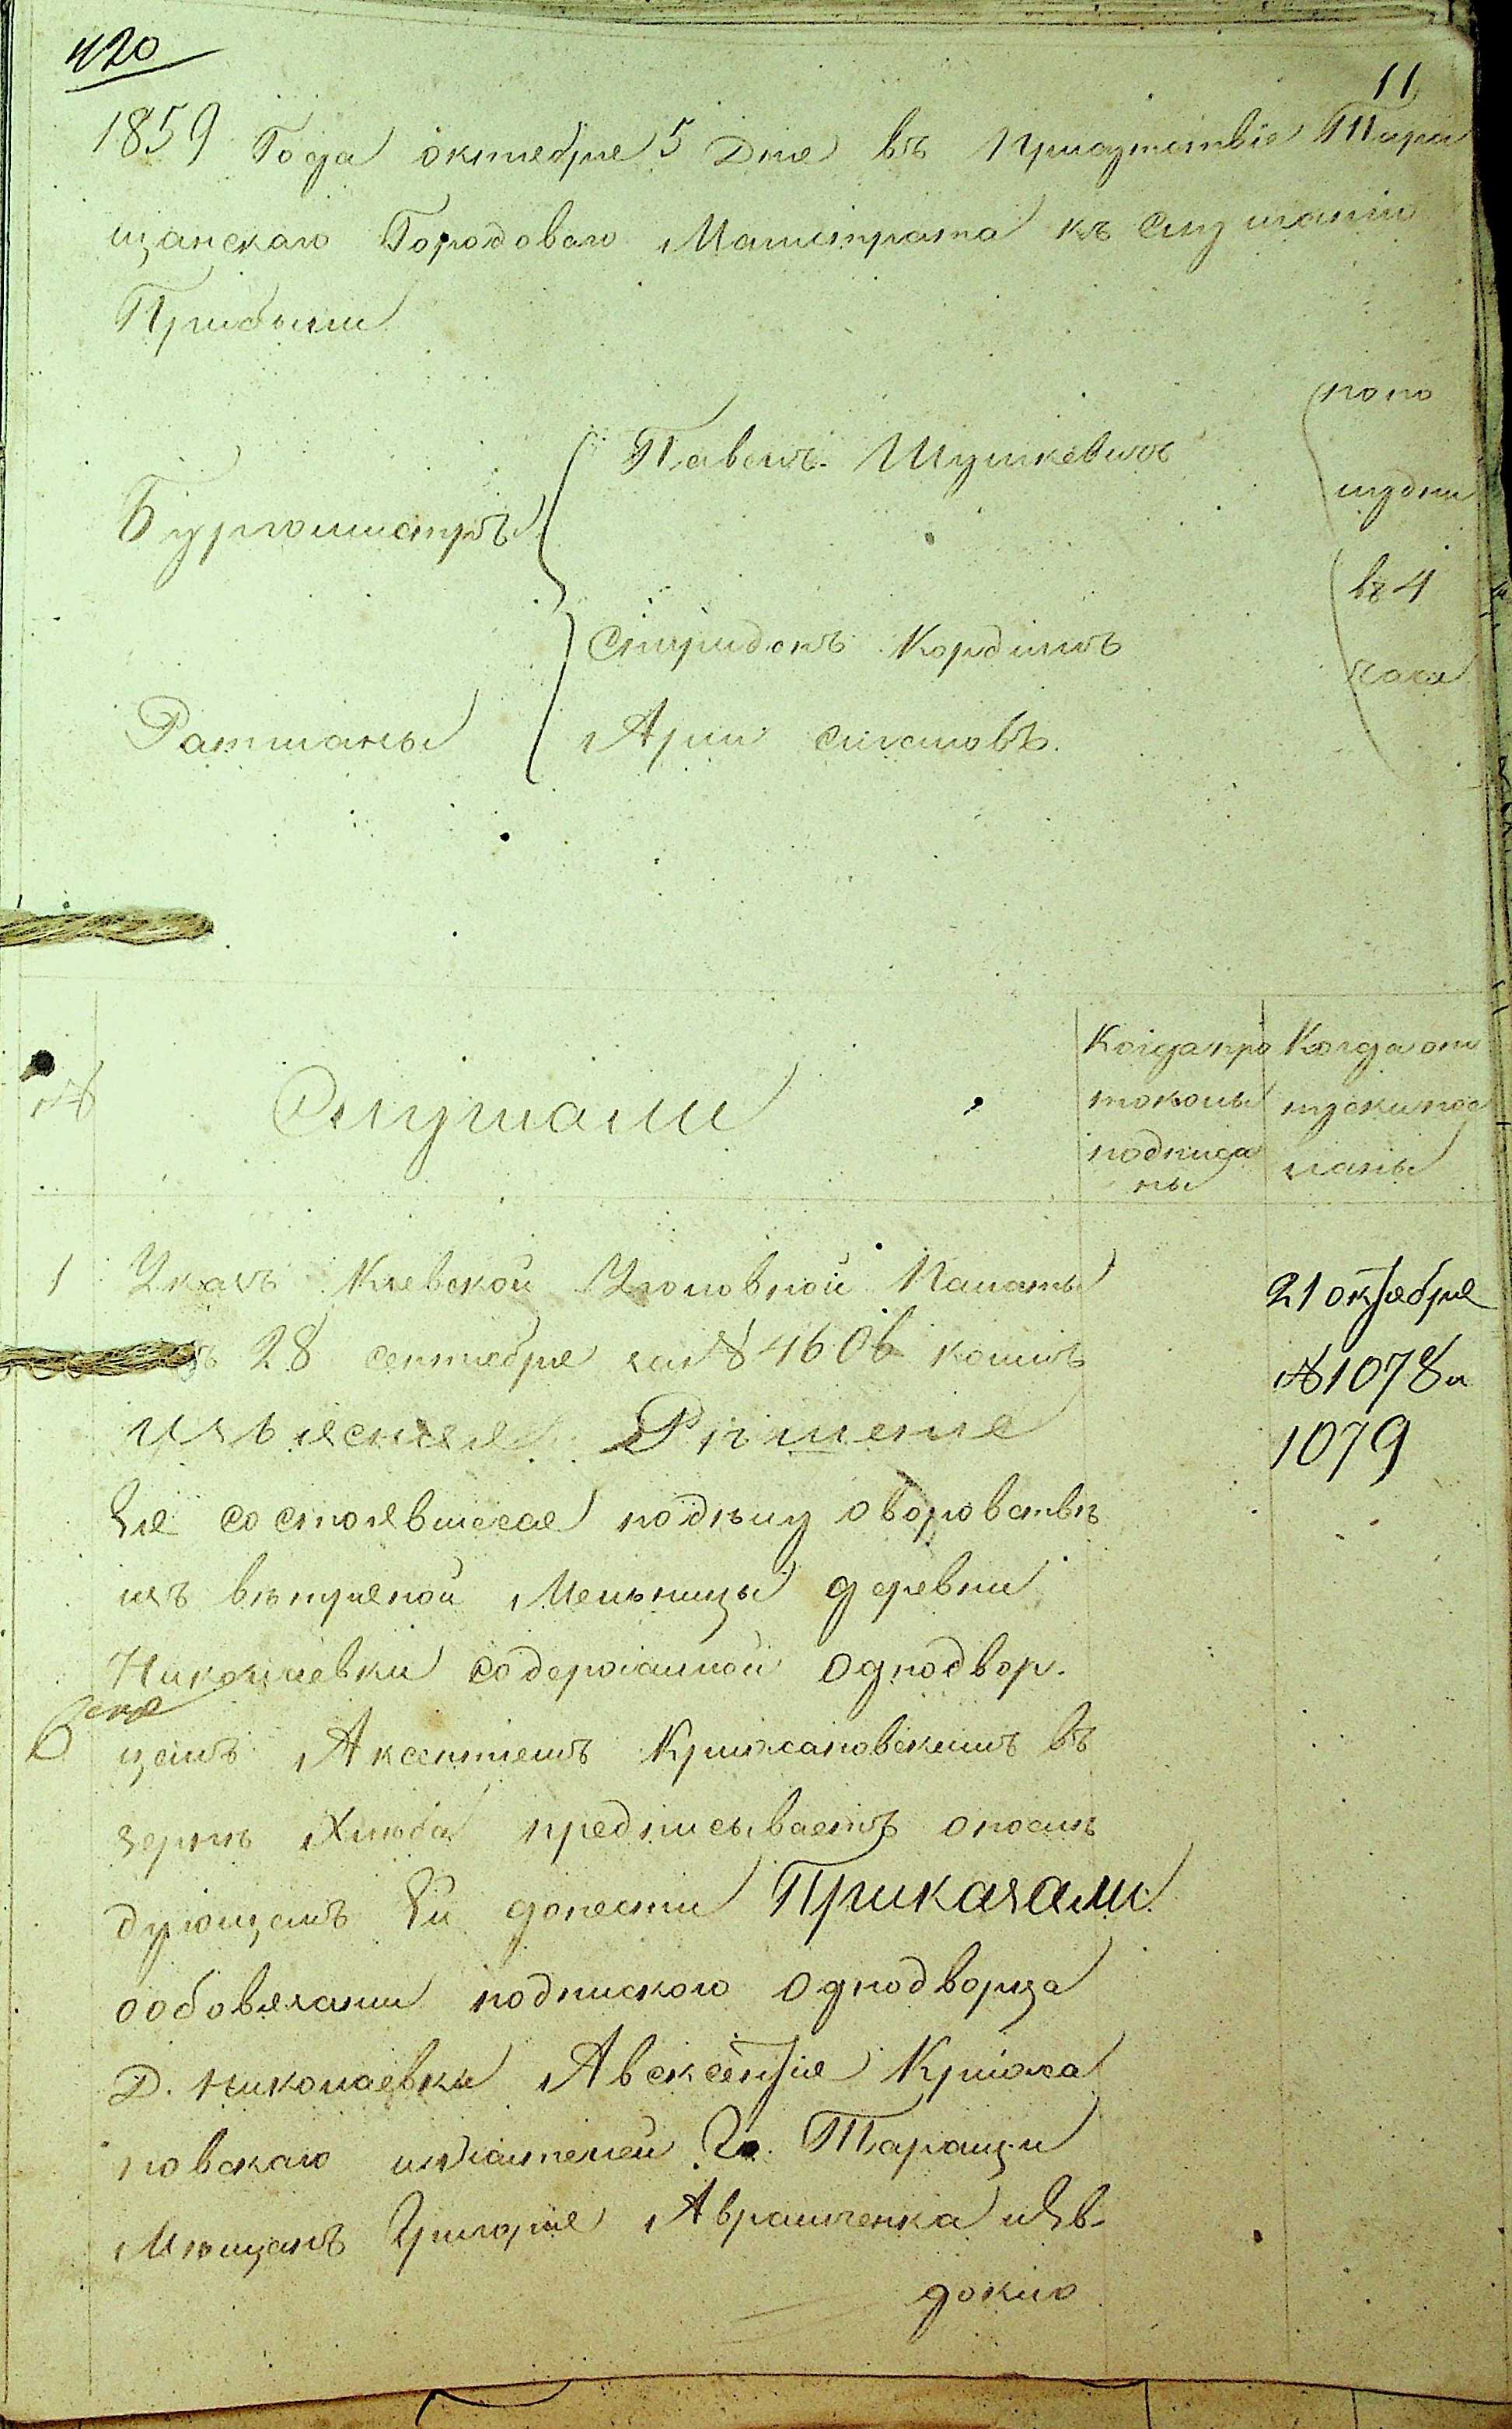 420
11
1859 Года октября 5 Дня въ Присутствіе Тара
щанскаго Городоваго Магистрата къ слушанію
Прибыли
Бургомистръ
Павелъ Шушкевичъ
по по
лудни
въ 4
часа
Спиридонъ Кордишъ
Ратманы
№
Слушали
Когда про
токолы
подписа
ны
Когда от
пуски пос
ланы
1
Указъ Кіевской Уголовной Палаты
28 сентября за № 4606 коимъ
изъясняя Ршение
Ея состоявшееся подѣлу оворовствѣ
изъ вѣтряной Мельницы деревни
Николаевки содержаимой однодвор-
цемъ Аксентіемъ Крижановскимъ въ
зернѣ Хлѣба предписываетъ опослѣ
дующемъ Ей донести Приказали
ообовязании подпискою Однодворца
Д. Николаевки Авксентія Крижа
новскаго ижителей Го. Таращи
Мѣщанъ Григорія Аврамченка иЕв-
докію
21 октября
№ 1078 и
1079